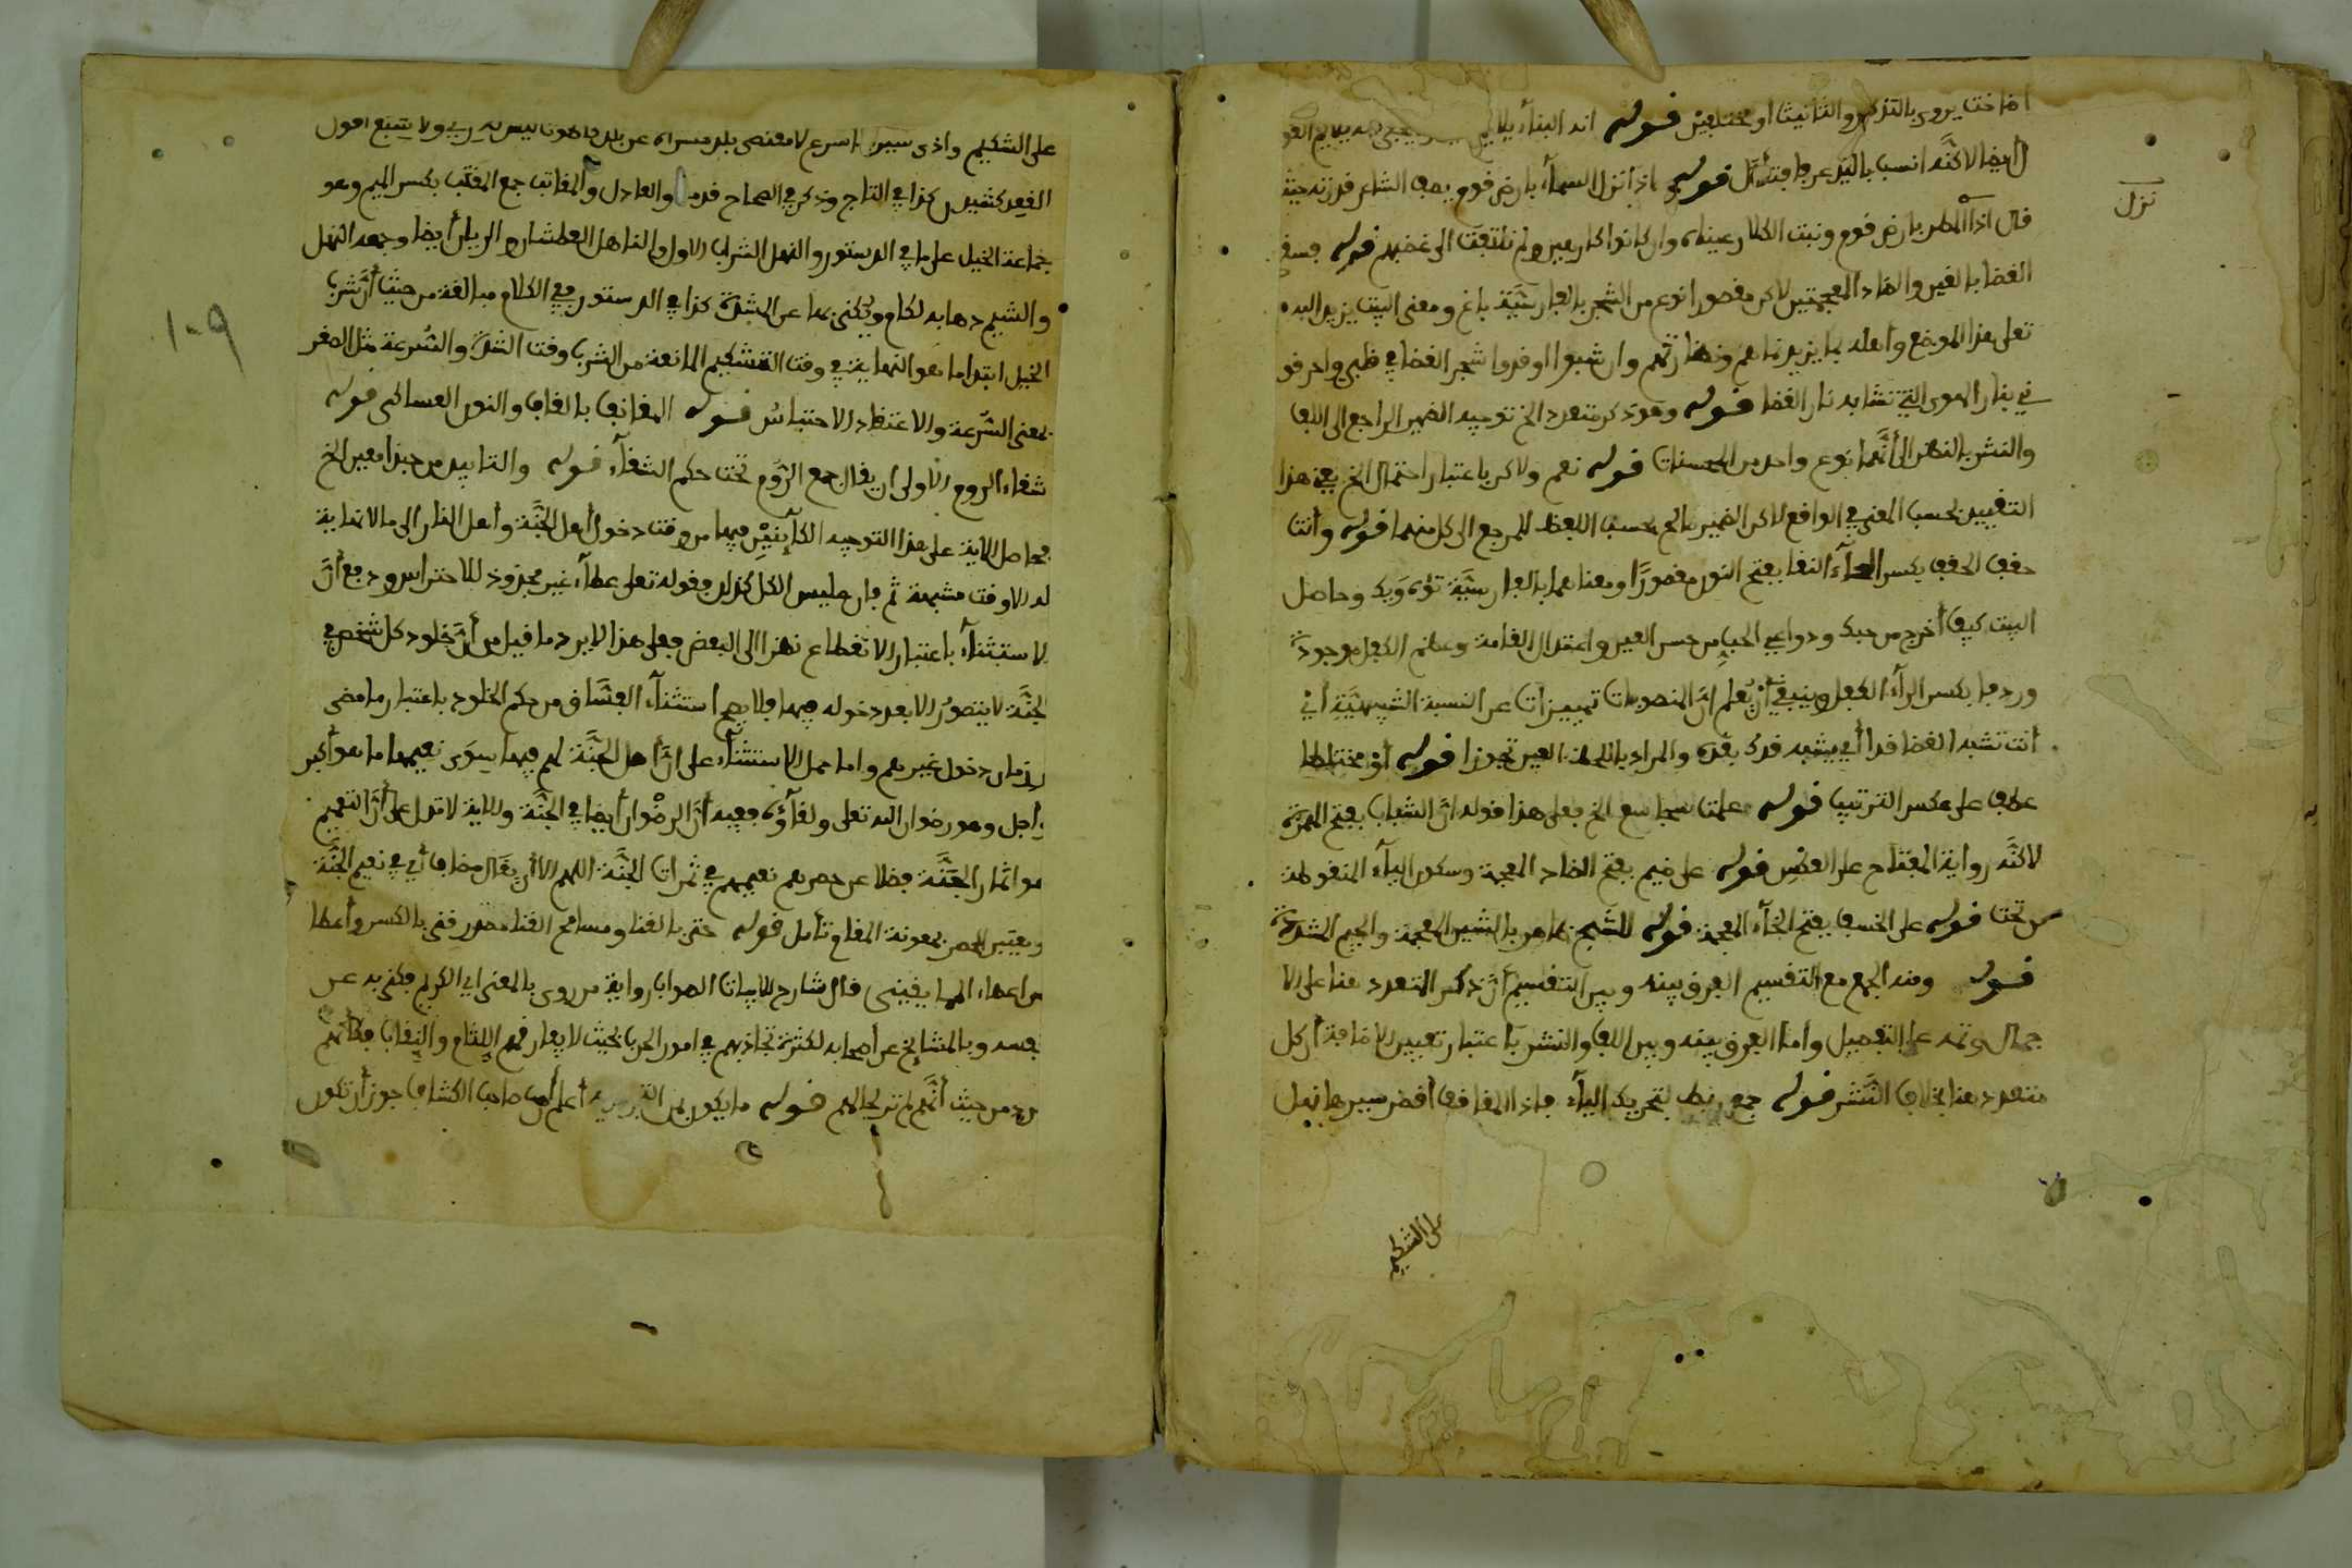 اضاخت يروى بالتذكير والتانيث او مختلفين قوله انه البناء يلايم
ايضا لاكنه انسب بالتيد عرفا فتأمل قوله اذا نزل السماء بارض قوم يصف الشاعر قدرته حيث
نزل
قال اذا المطر بارض قوم ونبت الكلا رعيناه وان كانوا كارهين ولم نلتفت الى غضبهم قوله فسقى
الغضا بالغين والضاد المعجمتين لاكن مقصورا نوع من الشجر بالفارسية باغ ومعنى البيت يزيد الله
تعلى هذا الموضع وأهله بما يزيد نماءهم ونضارتهم وان شبوا اوقدوا شجر الغضا في ظهري واحرقو
ني بنار الهوى التي تشابه نار الغضا قوله وهو ذكر متعدد الخ توجيه الضمير الراجع الى اللف
والنشر بالنظر الى أنهما نوع واحد من المحسنات قوله نعم ولاكن باعتبار احتمال الخ يعني هذا
التعيين بحسب المعنى في الواقع لاكن الضمير صالح بحسب اللفظ للمرجع الى كل منهما قوله وأنت
حقف الحقف بكسر الحاء النقا بفتح النون مقصورًا ومعناهما بالفارسية توده ريك وحاصل
البيت كيف أخرج من حبك ودواعي الحب من حسن العين واعتدال القامة وعظم الكفل موجودة
وردفا بكسر الراء الكفل وينبغي أن يعلم ان المنصوبات تمييزات عن النسبة التشبيهية أي
أنت تشبه الغصن قدا أي يشبه قدك بقده والمراد باللحظ العين تجوزا قوله أو مختلطا
عطف على عكس الترتيب قوله علمت يا مجاشع الخ فعلى هذا قوله ان الشباب بفتح الهمزة
لاكنه رواية المفتاح على العكس قوله على ضيم بفتح الضاد المعجمة وسكون الياء المنقوطة
من تحت قوله على الخسف بفتح الخاء المعجمة قوله للشج بما هو بالشين المعجمة والجيم المشددة
قوله ومنه الجمع مع التقسيم الفرق بينه وبين التقسيم أن ذكر المتعدد هنا على الا
جمال وثمه على التفصيل وأما الفرق بينه وبين اللف والنشر باعتبار تعيين الاضافة أن كل
متعدد هنا بخلاف النشر قوله جمع ربط بتحريك الباء قاد المقانب أقصى سيرها نهل
على الشكيم
على الشكيم وادنى سيرها سرع لا مقتضى بلد مسراه عن بلد كالموت ليس له ري ولا شبع اقول
القود كشيدن كذا في التاج وذكر في الصحاح قدم والعادل والمقانب جمع المقنب بكسر الميم وهو
جماعة الخيل على ما في الدستور والنهل الشراب الاول والناهل العطشان والريان أيضا وجمعه النهل
والشكيم دهانه لكام ويكنى بها عن الشدة كذا في الدستور وفي الكلام مبالغة من حيث أن شرب
الخيل ابتداما هو النهاية في وقت التشكيم المانعة من الشرب وقت الشدة والسرعة مثل الصغر
بمعنى السرعة والاعتقاد الاحتباس قوله المقانب بالقاف والنون العساكر قوله
شقاء الروم الاولى ان يقال جمع الروم تحت حكم الشقاء قوله والتابيد من مبدا معين الخ
فحاصل الاية على هذا التوجيه الكائنين فيها من وقت دخول أهل الجنة وأهل النار الى ما لا نهاية
له الا وقت مشيئة ثم فان ما ليس الكل كذلك وقوله تعلى عطاء غير مجذوذ للاحتراس ودفع أن
لاستثناء باعتبار الانقطاع نظرا الى البعض فعلى هذا لا يرد ما قيل من أن خلود كل شخص في
الجنة لا يتصور الا بعد دخوله فيها فلا يصح استثناء الفساق من حكم الخلود باعتبار ما مضى
زمان دخول غيرهم واما حمل الاستثناء على ان أهل الجنة لهم فيها سوى نعيمها ما هو أكبر
واجل وهو رضوان الله تعلى ولقاؤه ففيه أن الرضوان أيضا في الجنة والاية لا تدل على أن التنعيم
هو اثمار الجنة فضلا عن حصرهم تنعيمهم في ثمرات الجنة اللهم الا أن يقال مضاف أي في نعيم الجنة
ويعتبر الحصر بمعونة المقام تأمل قوله حتى بالقنا ومسامح القنا مصدر قنى بالكسر وأعطا
من اعطاء المها يقينى قال شارح الابيات الصواب رواية من روى بالمعنى اي الكريم فكنى به عن
نفسه وبالمشايخ عن أصحابه لكثرة تجاذبهم في امور الحرب بحيث لا يفارقهم اللثام والنقاب فكأنهم
مرد من حيث أنهم لم تر لحاهم قوله ما يكون أعلم أن صاحب الكشاف جوز أن تكون
١٠٩